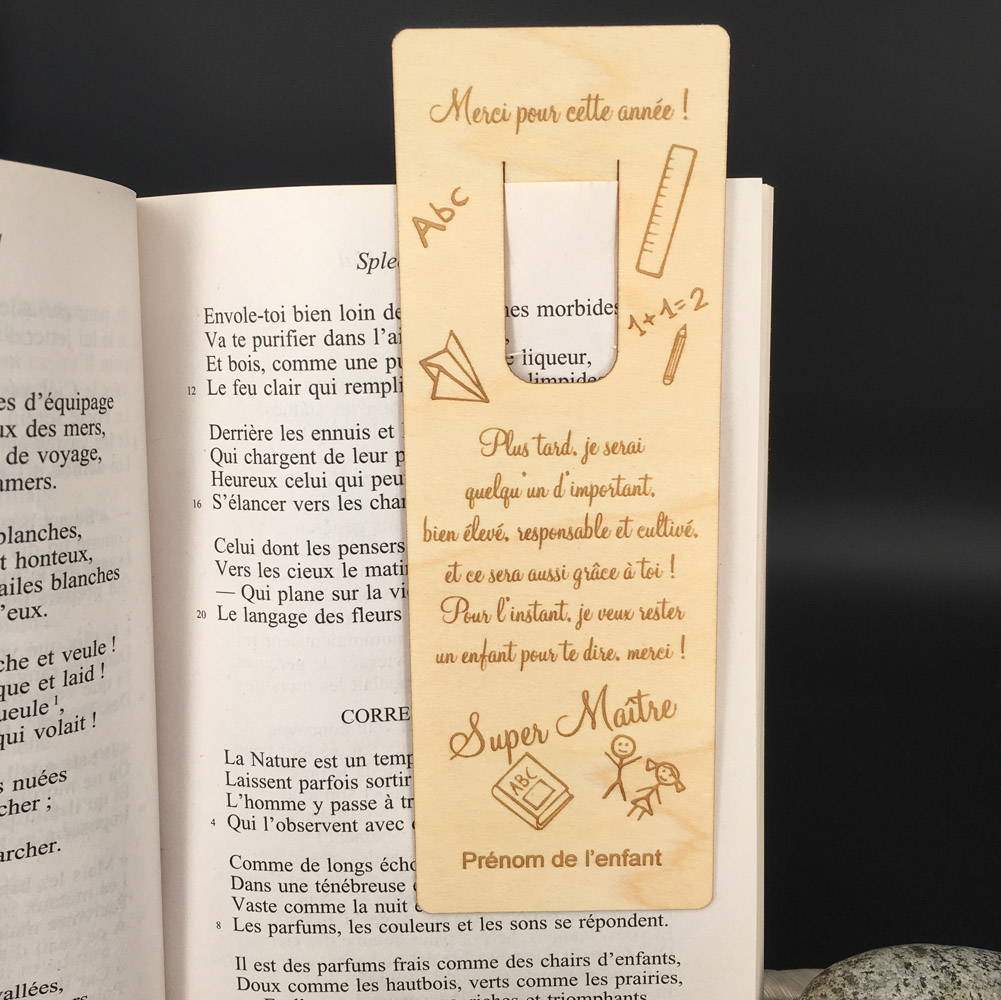 Merci pour cette année !
Abc
1+1=2
Plus tard, je serai
quelqu'un d'important,
bien élevé, responsable et cultivé,
et ce sera aussi grâce à toi !
Pour l'instant, je veux rester
un enfant pour te dire, merci !
Super Maître
ABC
Prénom de l'enfant
es d'équipage
ux des mers,
de voyage,
amers.
blanches,
t honteux,
ailes blanches
d'eux.
che et veule !
que et laid !
ueule¹,
qui volait !
s nuées
cher ;
archer.
vallées,
Sple
Envole-toi bien loin de
nes morbides
Va te purifier dans l'ai
Et bois, comme une pu
liqueur,
12 Le feu clair qui rempli
limpides
Derrière les ennuis et
Qui chargent de leur p
Heureux celui qui peu
16 S'élancer vers les cha
Celui dont les pensers
Vers les cieux le mati
— Qui plane sur la vi
20 Le langage des fleurs
CORRE
La Nature est un temp
Laissent parfois sortir
L'homme y passe à tr
4 Qui l'observent avec
Comme de longs écho
Dans une ténébreuse
Vaste comme la nuit e
8 Les parfums, les couleurs et les sons se répondent.
Il est des parfums frais comme des chairs d'enfants,
Doux comme les hautbois, verts comme les prairies,
riches et triomphants